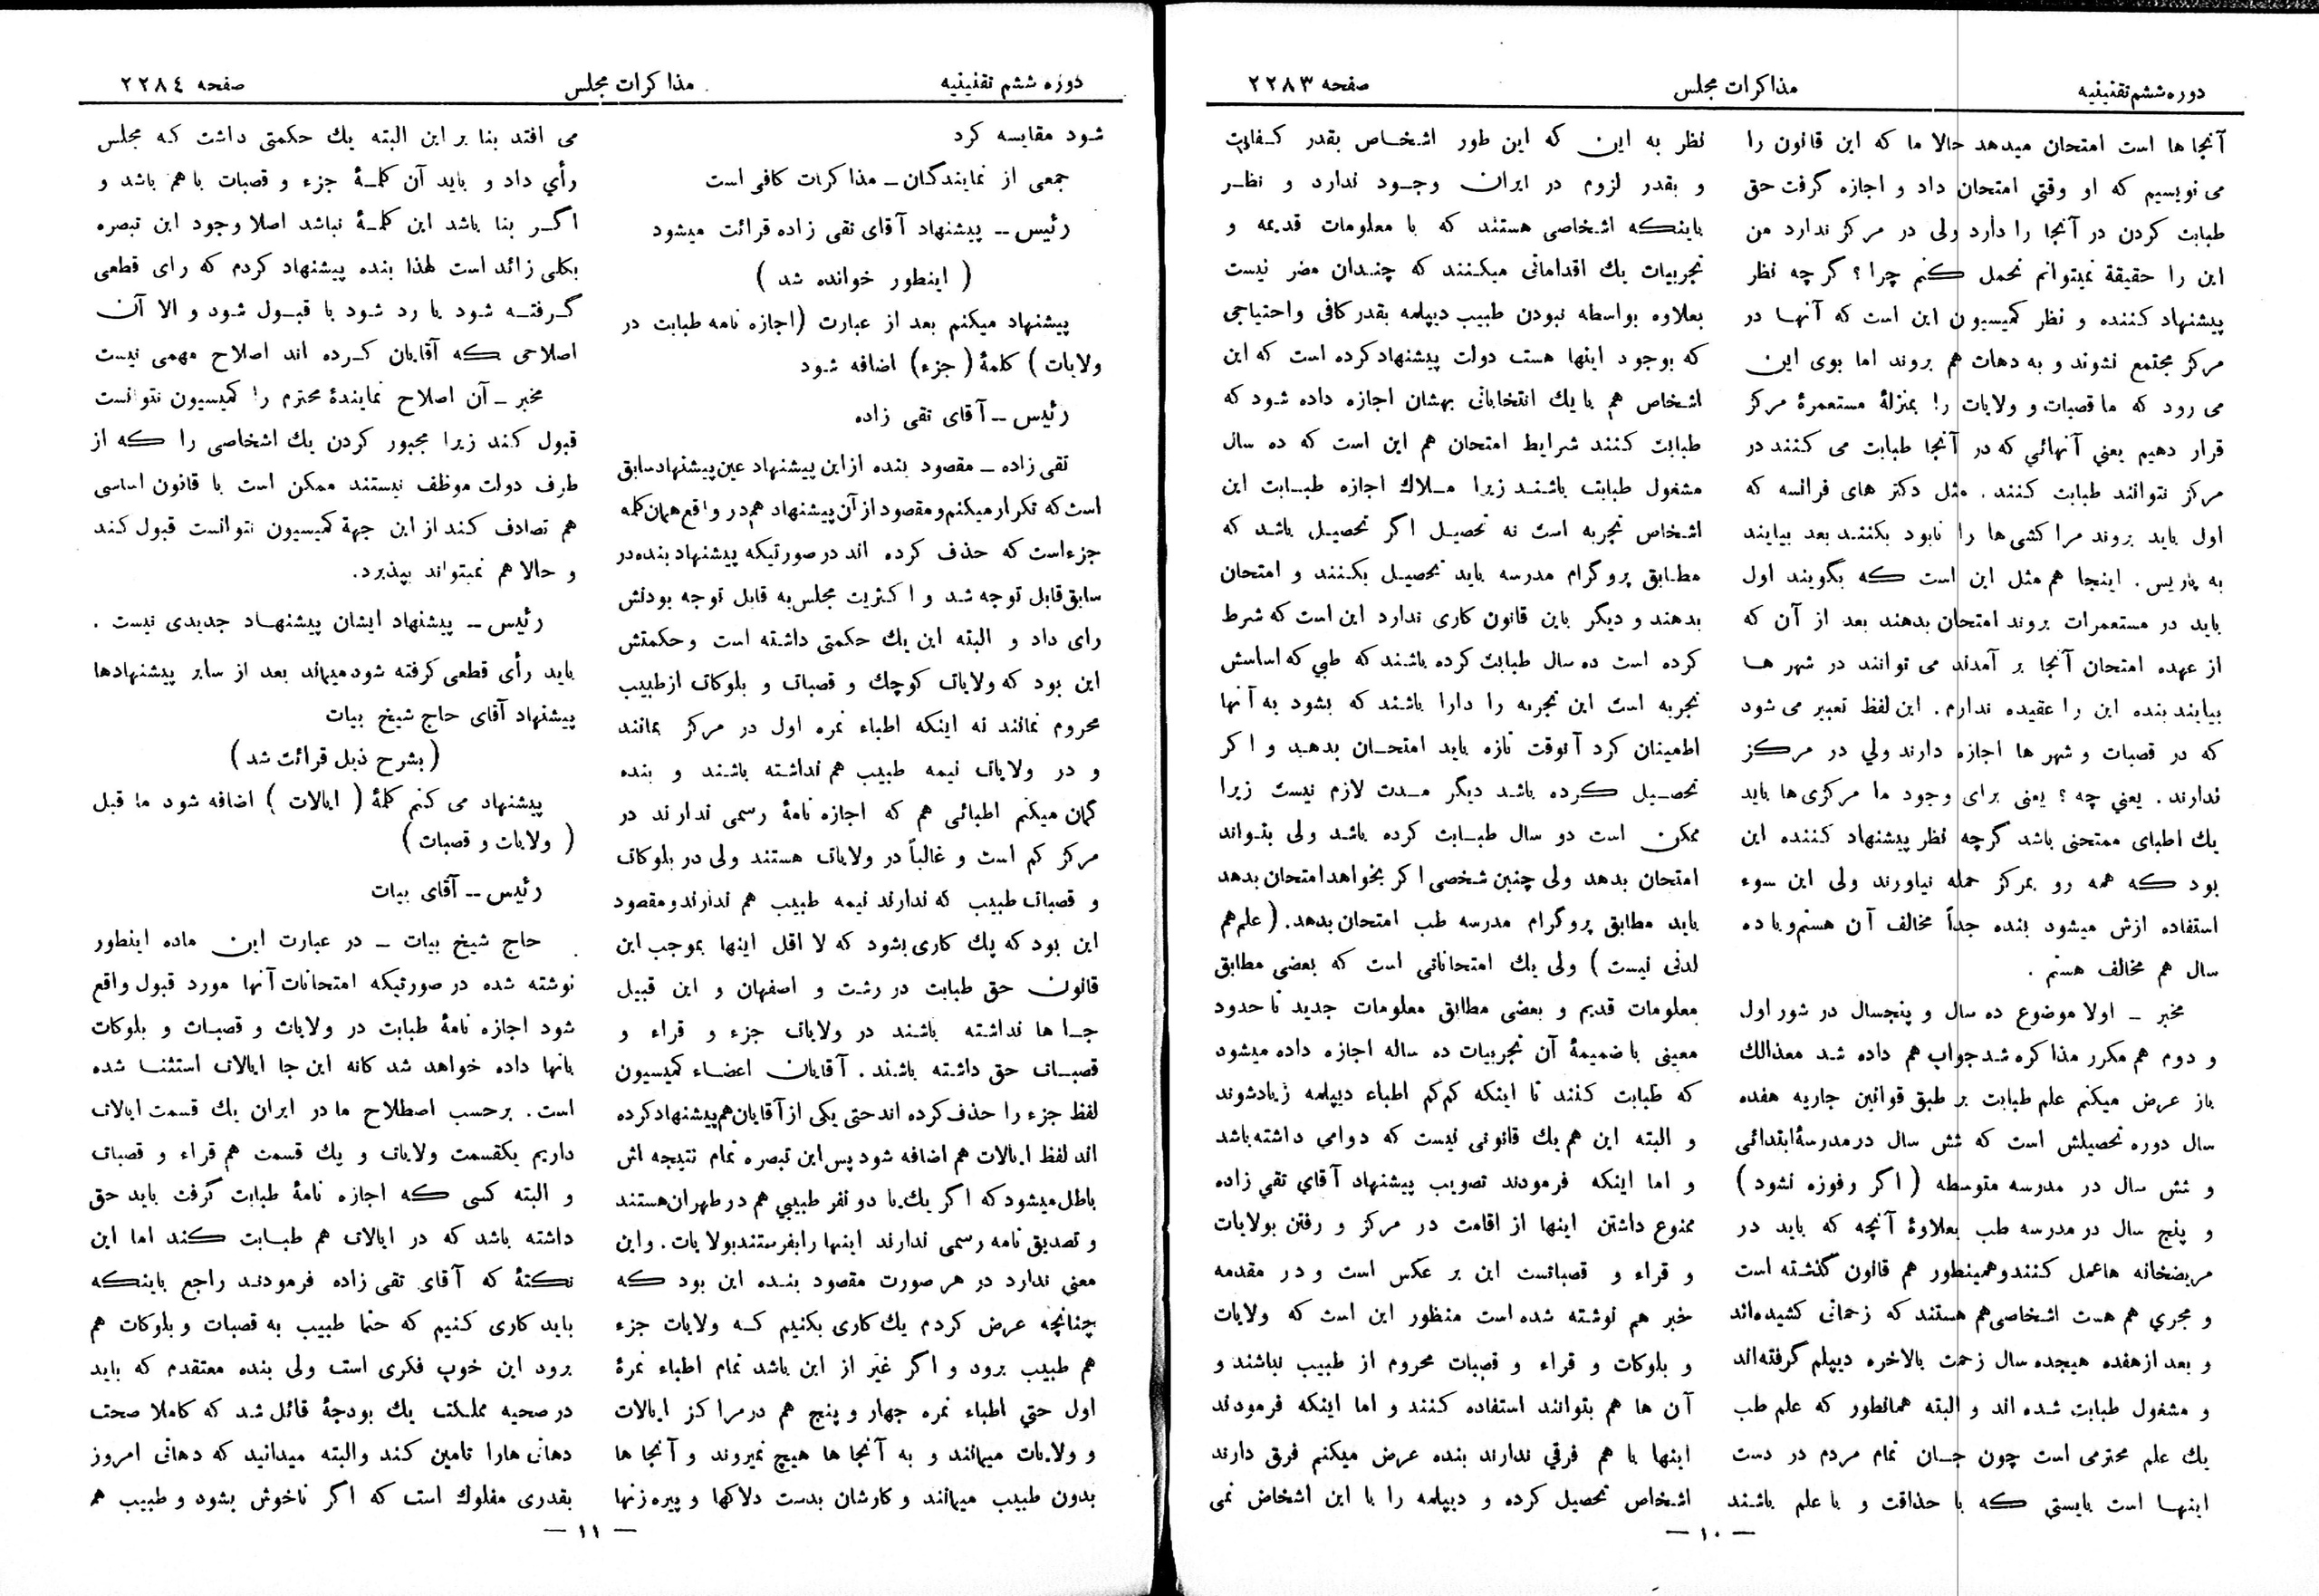 دوره ششم تقنینیه
مذاکرات مجلس
صفحه ۲۲۸۳
آنجا ها است امتحان میدهد حالا ما که این قانون را
می نویسیم که او وقتي امتحان داد و اجازه گرفت حق
طبابت کردن در آنجا را دارد ولی در مرکز ندارد من
این را حقیقة نمیتوانم تحمل کنم چرا ؟ گر چه نظر
پیشنهاد کننده و نظر کمیسیون این است که آنها در
مرکز مجتمع نشوند و به دهات هم بروند اما بوی این
می رود که ما قصبات و ولایات را بمنزلهٔ مستعمرهٔ مرکز
قرار دهیم یعني آنهائي که در آنجا طبابت می کنند در
مرکز نتوانند طبابت کنند . مثل دکتر های فرانسه که
اول باید بروند مراکشی ها را نابود بکنند بعد بیایند
به پاریس . اینجا هم مثل این است که بگویند اول
باید در مستعمرات بروند امتحان بدهند بعد از آن که
از عهده امتحان آنجا بر آمدند می توانند در شهر ها
بیایند بنده این را عقیده ندارم . این لفظ تعبیر می شود
که در قصبات و شهر ها اجازه دارند ولي در مرکز
ندارند . یعني چه ؟ یعنی برای وجود ما مرکزی ها باید
یك اطبای ممتحنی باشد گرچه نظر پیشنهاد کننده این
بود که همه رو بمرکز حمله نیاورند ولی این سوء
استفاده ازش میشود بنده جداً مخالف آن هستم و با ده
سال هم مخالف هستم .
مخبر ـ اولا موضوع ده سال و پنجسال در شور اول
و دوم هم مکرر مذاکره شد جواب هم داده شد معذالك
باز عرض میکنم علم طبابت بر طبق قوانین جاریه هفده
سال دوره تحصیلش است که شش سال در مدرسهٔ ابتدائی
و شش سال در مدرسه متوسطه ( اگر رفوزه نشود )
و پنج سال در مدرسه طب بعلاوهٔ آنچه که باید در
مریضخانه ها عمل کنند و همینطور هم قانون گذشته است
و مجري هم هست اشخاصی هم هستند که زحماتی کشیده‌اند
و بعد از هفده هیجده سال زحمت بالاخره دیپلم گرفته‌اند
و مشغول طبابت شده اند و البته همانطور که علم طب
یك علم محترمی است چون جان تمام مردم در دست
اینها است بایستي که با حذاقت و با علم باشند
نظر به این که این طور اشخاص بقدر کفایت
و بقدر لزوم در ایران وجود ندارد و نظر
باینکه اشخاصی هستند که با معلومات قدیمه و
تجربیات یك اقداماتی میکنند که چندان مضر نیست
بعلاوه بواسطه نبودن طبیب دیپلمه بقدر کافی و احتیاجی
که بوجود اینها هست دولت پیشنهاد کرده است که این
اشخاص هم با یك انتخاباتی بهشان اجازه داده شود که
طبابت کنند شرایط امتحان هم این است که ده سال
مشغول طبابت باشند زیرا ملاك اجازه طبابت این
اشخاص تجربه است نه تحصیل اگر تحصیل باشد که
مطابق پروگرام مدرسه باید تحصیل بکنند و امتحان
بدهند و دیگر باین قانون کاری ندارد این است که شرط
کرده است ده سال طبابت کرده باشند که طبي که اساسش
تجربه است این تجربه را دارا باشند که بشود به آنها
اطمینان کرد آنوقت تازه باید امتحان بدهد و اگر
تحصیل کرده باشد دیگر مدت لازم نیست زیرا
ممکن است دو سال طبابت کرده باشد ولی بتواند
امتحان بدهد ولی چنین شخصی اگر بخواهد امتحان بدهد
باید مطابق پروگرام مدرسه طب امتحان بدهد . ( علم هم
لدنی نیست ) ولی یك امتحاناتی است که بعضي مطابق
معلومات قدیم و بعضی مطابق معلومات جدید تا حدود
معینی با ضمیمهٔ آن تجربیات ده ساله اجازه داده میشود
که طبابت کنند تا اینکه کم کم اطباء دیپلمه زیاد شوند
و البته این هم یك قانونی نیست که دوامي داشته باشد
و اما اینکه فرمودند تصویب پیشنهاد آقاي تقي زاده
ممنوع داشتن اینها از اقامت در مرکز و رفتن بولایات
و قراء و قصباتست این بر عکس است و در مقدمه
خبر هم نوشته شده است منظور این است که ولایات
و بلوکات و قراء و قصبات محروم از طبیب نباشند و
آن ها هم بتوانند استفاده کنند و اما اینکه فرمودند
اینها با هم فرقي ندارند بنده عرض میکنم فرق دارند
اشخاص تحصیل کرده و دیپلمه را با این اشخاص نمی
— ۱۰ —
دوره ششم تقنینیه
مذاکرات مجلس
صفحه ۲۲۸۴
شود مقایسه کرد
جمعی از نمایندگان ـ مذاکرات کافی است
رئیس ـ پیشنهاد آقای تقی زاده قرائت میشود
( اینطور خوانده شد )
پیشنهاد میکنم بعد از عبارت (اجازه نامه طبابت در
ولایات ) کلمهٔ ( جزء ) اضافه شود
رئیس ـ آقای تقی زاده
تقی زاده ـ مقصود بنده از این پیشنهاد عین پیشنهاد سابق
است که تکرار میکنم و مقصود از آن پیشنهاد هم در واقع همان کلمه
جزء است که حذف کرده اند در صورتیکه پیشنهاد بنده در
سابق قابل توجه شد و اکثریت مجلس به قابل توجه بودنش
رای داد و البته این یك حکمتی داشته است و حکمتش
این بود که ولایات کوچك و قصبات و بلوکات از طبیب
محروم نمانند نه اینکه اطباء نمره اول در مرکز بمانند
و در ولایات نیمه طبیب هم نداشته باشند و بنده
گمان میکنم اطبائی هم که اجازه نامهٔ رسمی ندارند در
مرکز کم است و غالباً در ولایات هستند ولی در بلوکات
و قصبات طبیب که ندارند نیمه طبیب هم ندارند و مقصود
این بود که یك کاری بشود که لا اقل اینها بموجب این
قانون حق طبابت در رشت و اصفهان و این قبیل
جا ها نداشته باشند در ولایات جزء و قراء و
قصبات حق داشته باشند . آقایان اعضاء کمیسیون
لفظ جزء را حذف کرده اند حتی یکی از آقایان هم پیشنهاد کرده
اند لفظ ایالات هم اضافه شود پس این تبصره تمام نتیجه اش
باطل میشود که اگر یك یا دو نفر طبیبي هم در طهران هستند
و تصدیق نامه رسمی ندارند اینها را بفرستند بولایات . و این
معنی ندارد در هر صورت مقصود بنده این بود که
چنانچه عرض کردم یك کاری بکنیم که ولایات جزء
هم طبیب برود و اگر غیر از این باشد تمام اطباء نمرهٔ
اول حتي اطباء نمره چهار و پنج هم در مراکز ایالات
و ولایات میمانند و به آنجا ها هیچ نمیروند و آنجا ها
بدون طبیب میمانند و کارشان بدست دلاکها و پیره زنها
می افتد بنا بر این البته یك حکمتی داشت که مجلس
رأي داد و باید آن کلمهٔ جزء و قصبات با هم باشد و
اگر بنا باشد این کلمهٔ نباشد اصلا وجود این تبصره
بکلی زائد است لهذا بنده پیشنهاد کردم که رای قطعی
گرفته شود یا رد شود یا قبول شود و الا آن
اصلاحی که آقایان کرده اند اصلاح مهمی نیست
مخبر ـ آن اصلاح نمایندهٔ محترم را کمیسیون نتوانست
قبول کند زیرا مجبور کردن یك اشخاصی را که از
طرف دولت موظف نیستند ممکن است با قانون اساسی
هم تصادف کند از این جهة کمیسیون نتوانست قبول کند
و حالا هم نمیتواند بپذیرد.
رئیس ـ پیشنهاد ایشان پیشنهاد جدیدی نیست .
باید رأی قطعی گرفته شود میماند بعد از سایر پیشنهادها
پیشنهاد آقای حاج شیخ بیات
( بشرح ذیل قرائت شد )
پیشنهاد می کنم کلمهٔ ( ایالات ) اضافه شود ما قبل
( ولایات و قصبات )
رئیس ـ آقای بیات
حاج شیخ بیات ـ در عبارت این ماده اینطور
نوشته شده در صورتیکه امتحانات آنها مورد قبول واقع
شود اجازه نامهٔ طبابت در ولایات و قصبات و بلوکات
بانها داده خواهد شد کانه این جا ایالات استثنا شده
است . برحسب اصطلاح ما در ایران یك قسمت ایالات
داریم یکقسمت ولایات و یك قسمت هم قراء و قصبات
و البته کسی که اجازه نامهٔ طبابت گرفت باید حق
داشته باشد که در ایالات هم طبابت کند اما این
نکتهٔ که آقای تقی زاده فرمودند راجع باینکه
باید کاری کنیم که حتما طبیب به قصبات و بلوکات هم
برود این خوب فکری است ولی بنده معتقدم که باید
در صحیه مملکت یك بودجهٔ قائل شد که کاملا صحت
دهاتی هارا تامین کند والبته میدانید که دهاتی امروز
بقدری مفلوك است که اگر ناخوش بشود و طبیب هم
— ۱۱ —